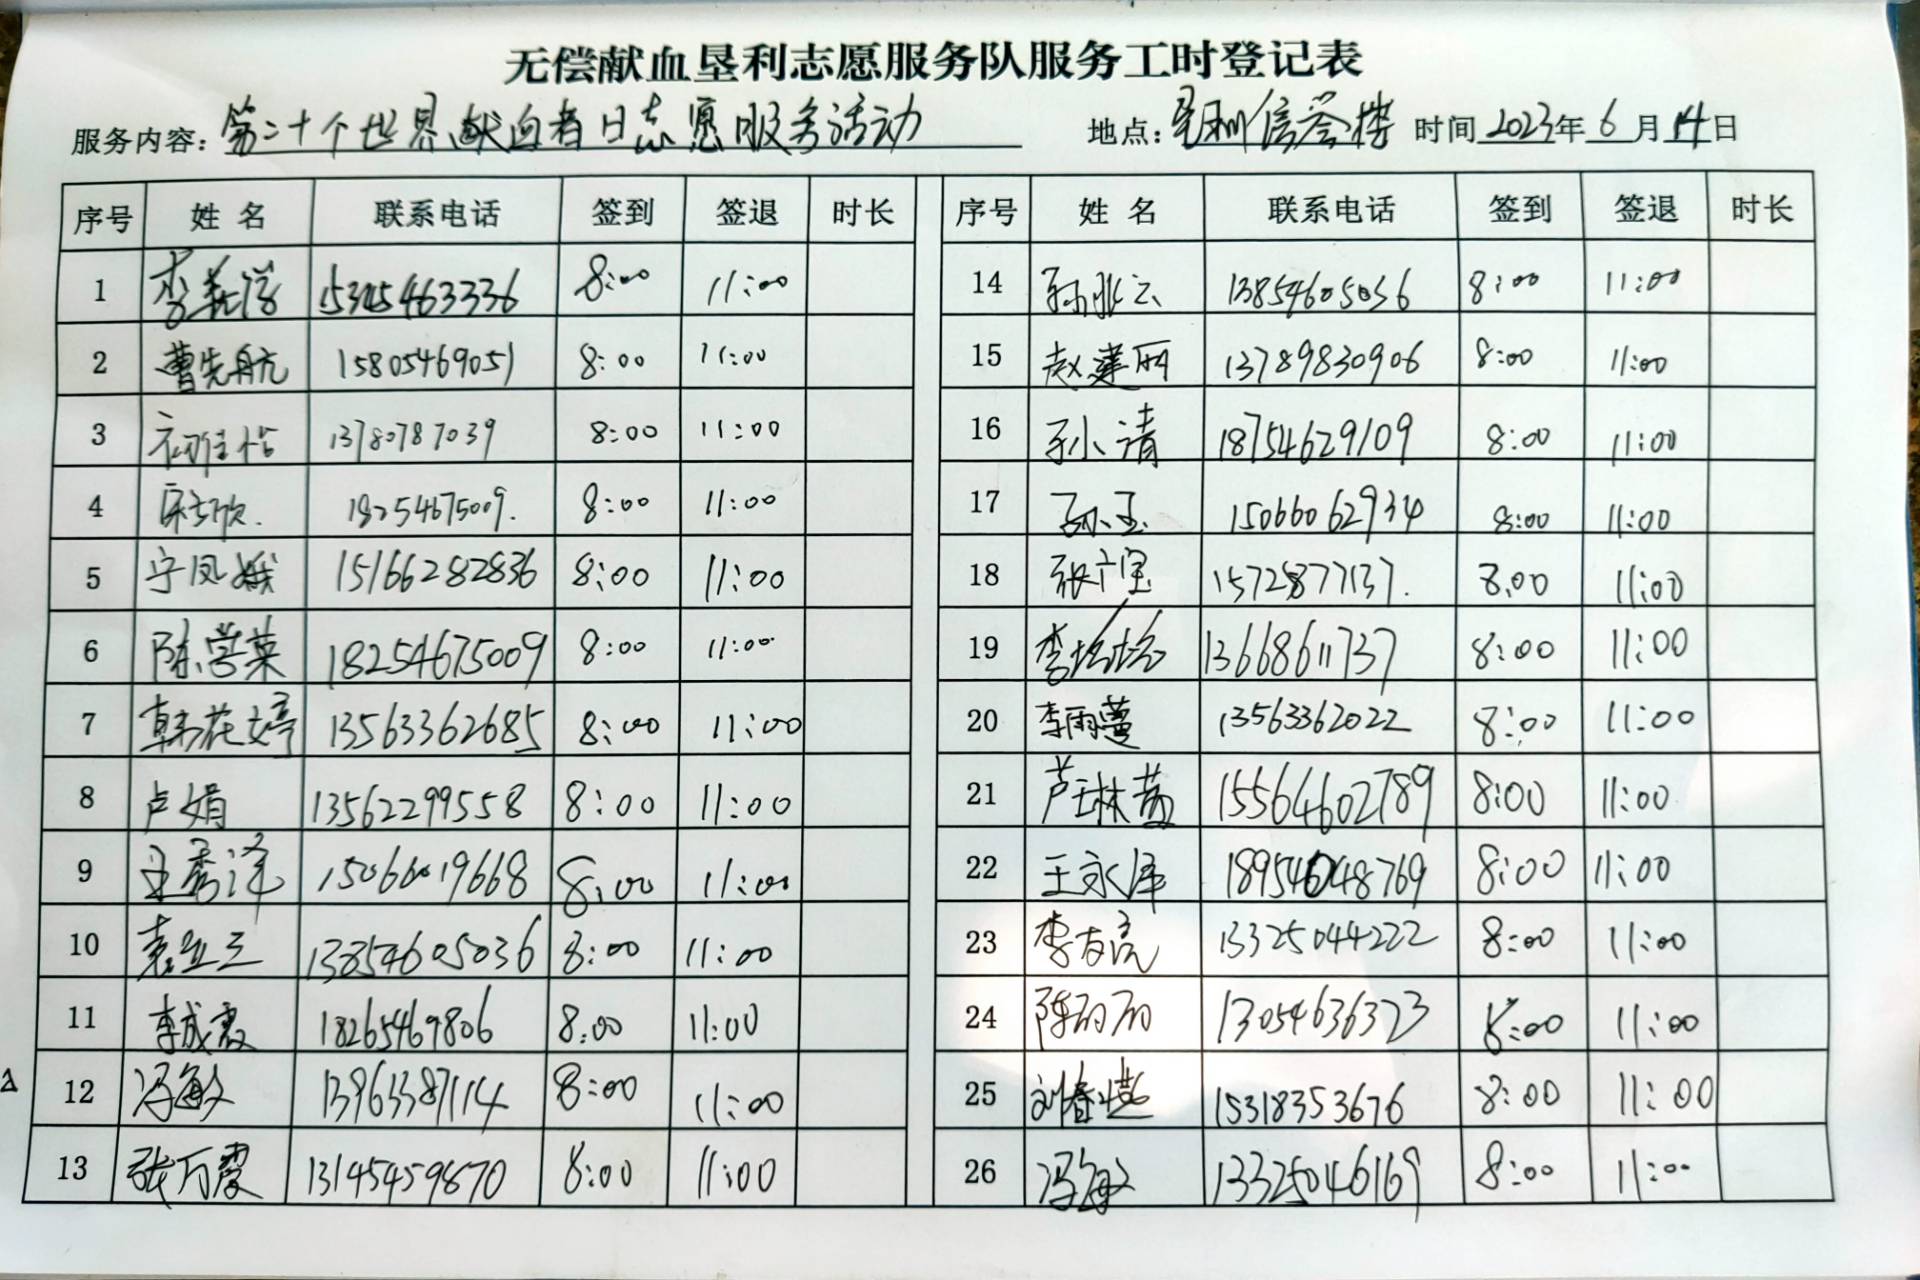 无偿献血垦利志愿服务队服务工时登记表
服务内容：第二十个世界献血者日志愿服务活动 地点：垦利信誉楼 时间2023年6月14日
序号 姓名 联系电话 签到 签退 时长 序号 姓名 联系电话 签到 签退 时长
1 李 15315463336 8:00 11:00 14 孙 云 13854605036 8:00 11:00
2 曹先航 15805469051 8:00 11:00 15 赵建丽 13789830906 8:00 11:00
3 13780787039 8:00 11:00 16 孙小清 18754629109 8:00 11:00
4 18254675009. 8:00 11:00 17 孙玉 15066062934 8:00 11:00
5 宁凤娥 15166282836 8:00 11:00 18 张广宝 15725877137. 8:00 11:00
6 陈学英 18254675009 8:00 11:00 19 李培培 13668611737 8:00 11:00
7 韩花婷 13563362685 8:00 11:00 20 李雨蔓 13563362022 8:00 11:00
8 卢娟 13562299558 8:00 11:00 21 芦 15564602789 8:00 11:00
9 王秀泽 15066019668 8:00 11:00 22 王永泽 189546048769 8:00 11:00
10 袁 13854605036 8:00 11:00 23 李友亮 13325044222 8:00 11:00
11 李成霞 18265469806 8:00 11:00 24 陈丽丽 13054636323 8:00 11:00
12 冯敏 13963387114 8:00 11:00 25 刘春燕 15318353676 8:00 11:00
13 张万霞 13145459870 8:00 11:00 26 冯敏 13325046169 8:00 11:00